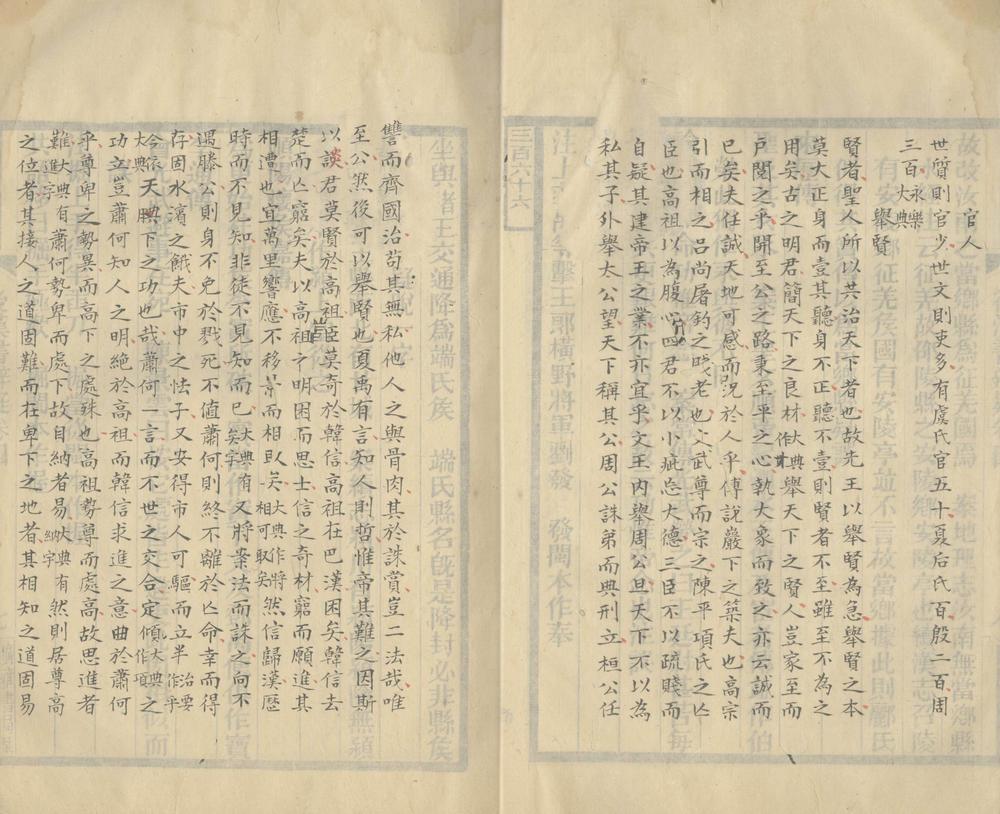 官人
世質則官少世文則吏多有虞氏官五十夏后氏百殷二百周
三百永樂大典
舉賢
賢者聖人所以共治天下者也故先王以舉賢為急舉賢之本
莫大正身而壹其聽身不正聽不壹則賢者不至雖至不為之
用矣古之明君簡天下之良材大典作業舉天下之賢人豈家至而
戶閱之乎開至公之路秉至平之心執大象而致之亦云誠而
已矣夫任誠天地可感而況於人乎傅說巖下之築夫也高宗
引而相之呂尚屠釣之賤老也文武尊而宗之陳平項氏之亡
臣也高祖以為腹心四君不以小疵忘大德三臣不以疏賤而
自疑其建帝王之業不亦宜乎文王內舉周公旦天下不以為
私其子外舉太公望天下稱其公周公誅弟而典刑立桓公任
讐而齊國治苟其無私他人之與骨肉其於誅賞豈二法哉唯
至公然後可以舉賢也夏禹有言知人則哲惟帝其難之因斯
以談君莫賢於高祖臣莫奇於韓信高祖在巴漢困矣韓信去
楚而亡窮矣夫以高祖之明困而思士信之奇材窮而願進其
相遭也宜萬里響應不移景而相取矣大典作將相可取矣然信歸漢歷
時而不見知非徒不見知而已大典有矣字又將案法而誅之向不
遇滕公則身不免於戮死不值蕭何則終不離於亡命幸而得
存固水濱之餓夫市中之怯子又安得市人可驅而立半治要作平
今依大典天下之功也哉蕭何一言而不世之交合定傾大典作項之
功立豈蕭何知人之明絕於高祖而韓信求進之意曲於蕭何
乎尊卑之勢異而高下之處殊也高祖勢尊而處高故思進者
難大典有進字蕭何勢卑而處下故自納者易大典有納字然則居尊高
之位者其接人之道固難而在卑下之地者其相知之道固易